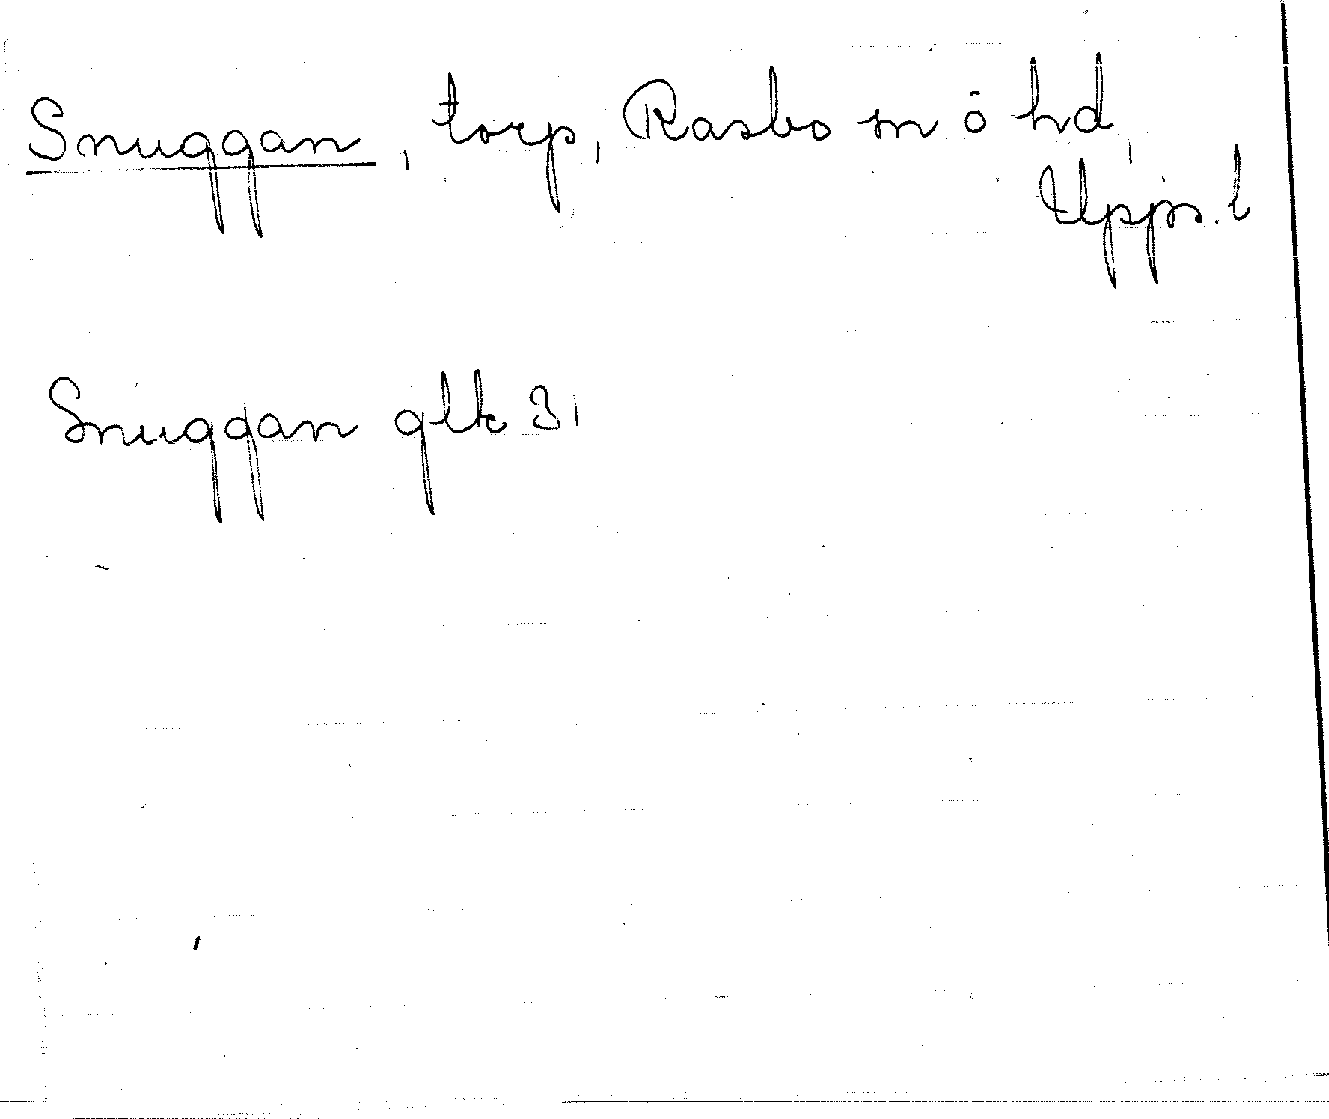 Snuggan, torp, Rasbo sn ö hd,
Upps. l
Snuggan glk 31